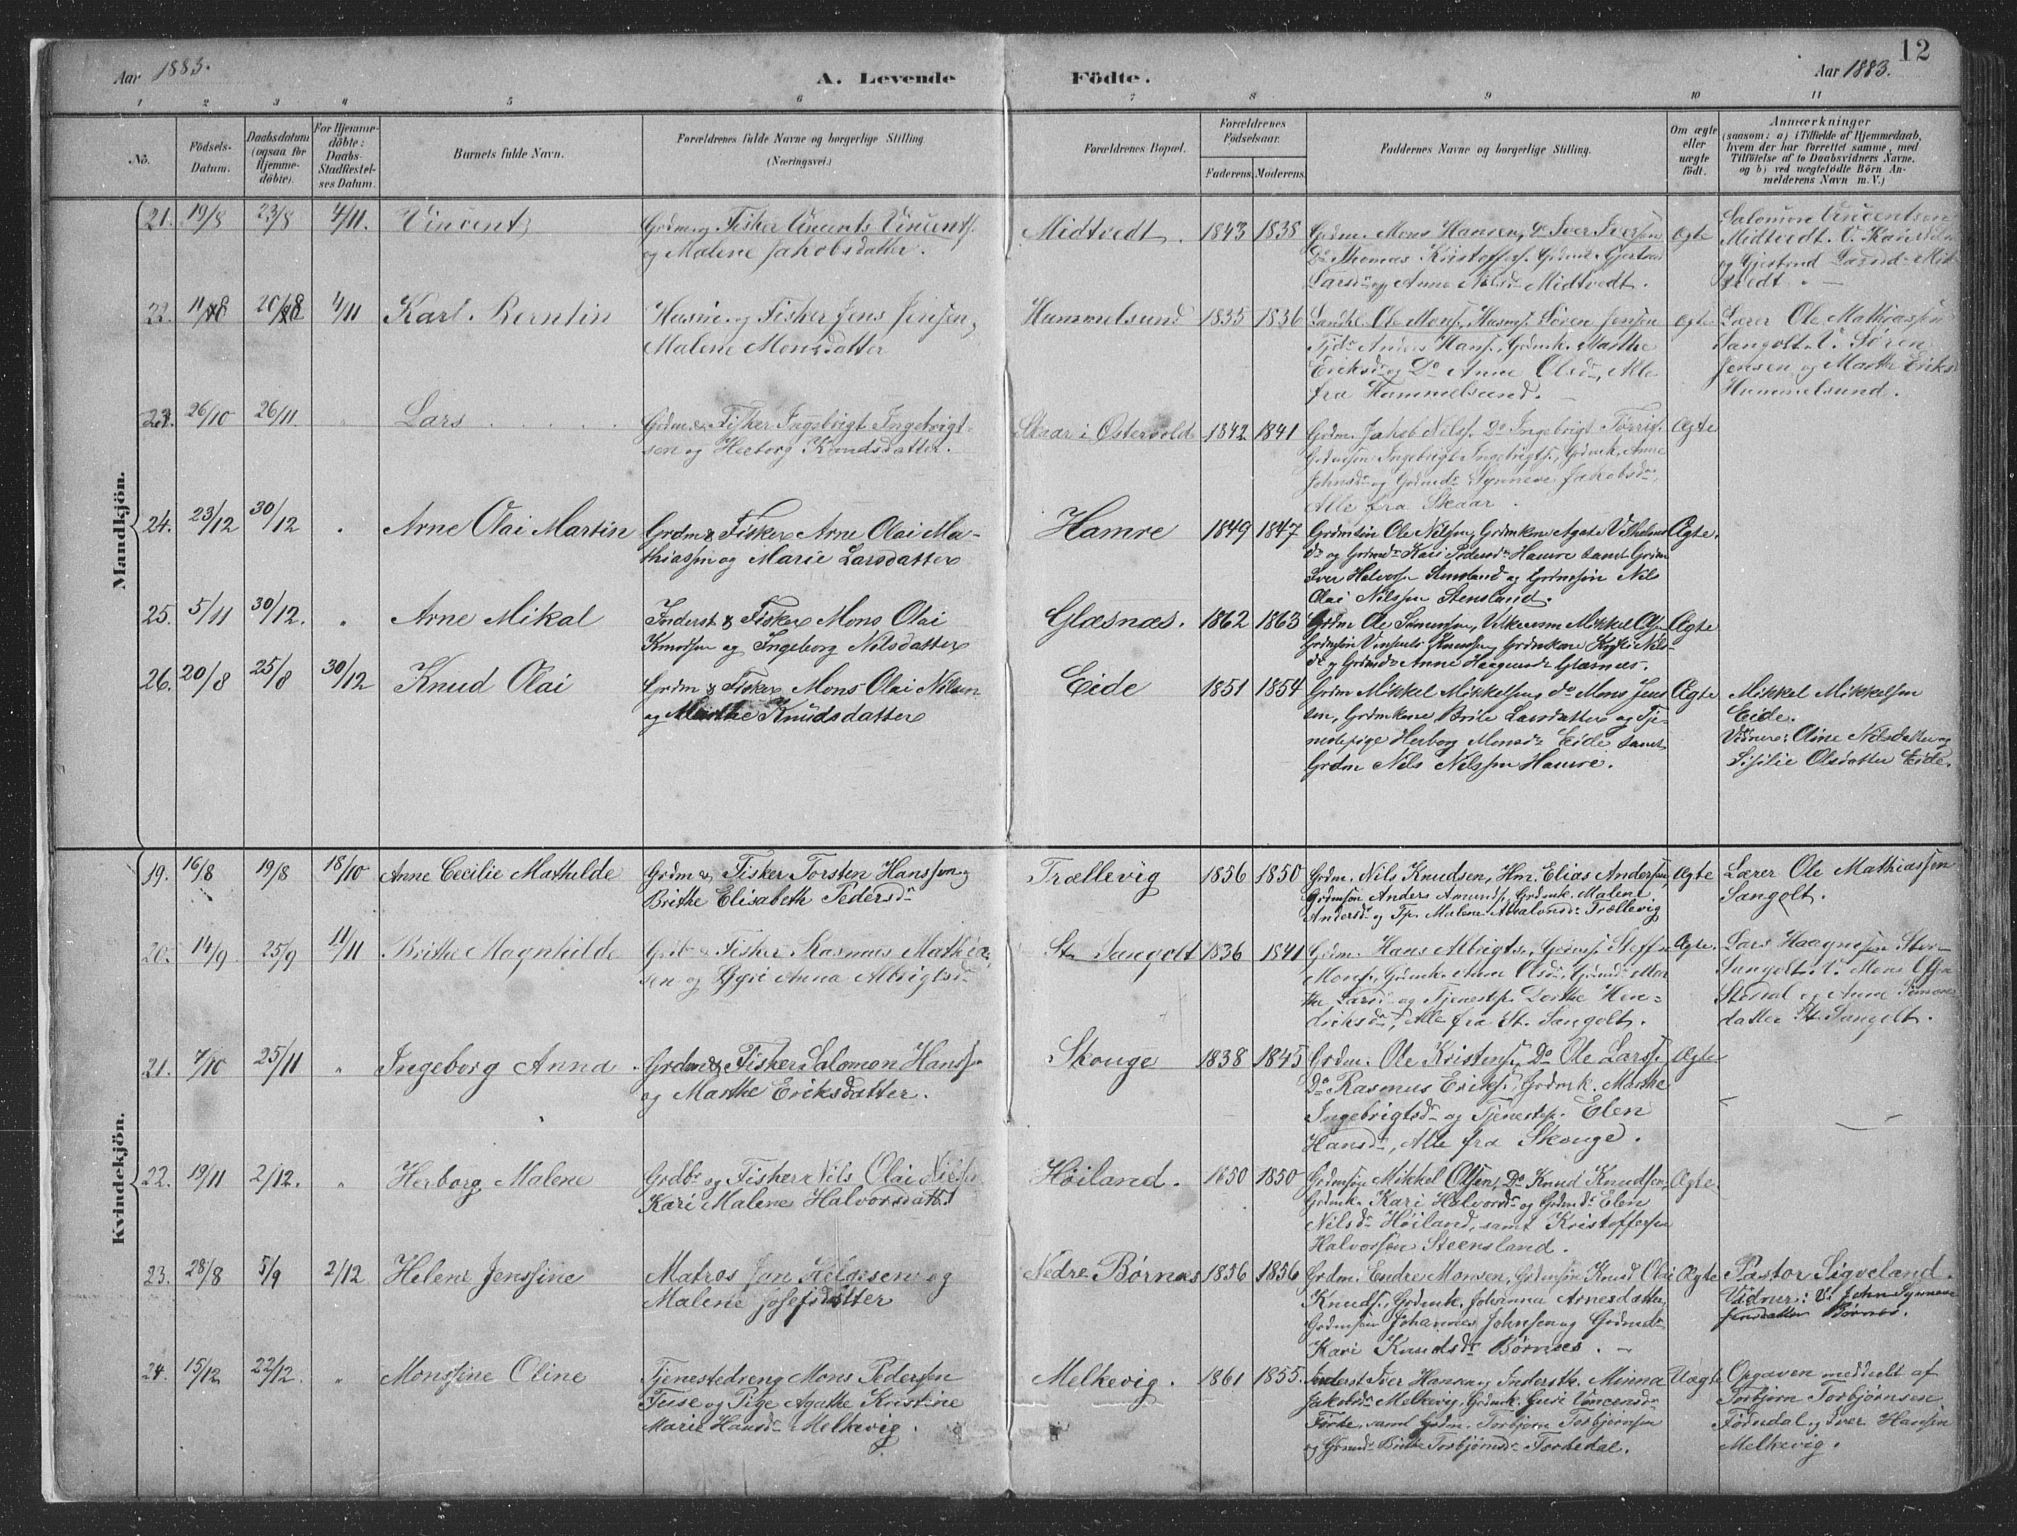 12
Aar 1883.
A. Levende Födte.
Aar 1883.
1 2 3 4 5 6 7 8 9 10 11
No.
Födsels-Datum.
Daabsdatum (ogsaa for Hjemmedöbte).
For Hjemmedöbte: Daabs-Stadfestelses Datum.
Barnets fulde Navn.
Forældrenes fulde Navne og borgerlige Stilling (Næringsvei.)
Forældrenes Bopæl.
Forældrenes Födselsaar.
Faderens. Moderens.
Faddernes Navne og borgerlige Stilling.
Om ægte eller uægte födt.
Anmærkninger
(saasom: a) i Tilfælde af Hjemmedaab, hvem der har forrettet samme, med Tilföielse af to Daabsvidners Navne, og b) ved uægtefödte Börn Anmelderens Navn m. V.)
Mandkjön.
21. 19/8 23/8 4/11. Vincent
Grdm. og Fisker Vincents Vincents.
og Malene Jakobsdatter.
Midtvedt. 1843 1838
Grdm. Mons Hansen, Do Iver Iversen
Do Thomas Kristoffers. Grdmk. Gjertrud
Larsd. og Anne Nilsd. Midtvedt.
Ægte
Salomon Vincentsen
Midtvedt. V.
og Gjertrud Larsd. Midtvedt.
22. 11/8 20/8 4/11 Karl Berntin
Husm. og Fisker Jens Jensen,
Malene Monsdatter
Hummelsund 1835 1836
Ole Mons., Husms. Sören Jensen
Anders Hans., Grdmk. Marthe
Eriksdr. og Do Anne Olsdr. Alle
fra Hummelsund.
Ægte
Lærer Ole Mathiassen
Sangolt. V. Sören
Jensen og Marthe Eriks
Hummelsund.
23. 26/10 26/11 " Lars
Grdm. & Fisker Ingebrigt Ingebrigt-
sen og Herborg Knudsdatter.
Skaar i Östervold 1842 1841
Grdm. Jakob Nils. Do Ingebrigt
Grdmsøn Ingebrigt Ingebrigts., Grdmk. Anne
Johnsdr. og Grdmdr. Synneve Jakobsdr.
Alle fra Skaar.
Ægte
24. 23/12 30/12 " Arne Olai Martin
Grdm & Fisker Arne Olai Ma-
thiassen og Marie Larsdatter
Hamre 1849 1847
Grdmsön Ole Nilsen, Grdmkone Agate
dr. og Grdmdr. Kari Pedersdr. Hamre samt Grdm
Iver Halvorsen Stensland og Grdmsön Nils
Olai Nilssen Stensland.
Ægte.
25. 5/11 30/12. " Arne Mikal
Inderst & Fisker Mons Olai
Knudsen og Ingeborg Nilsdatter
Glæsnæs. 1862 1863
Grdm Ole Simonsen, Mikkel Ols.
Grdmsön Vinsents Knudsen, Grdmkone Nils-
dr. og Grdmdr. Anne Glæsnæs.
Ægte
26. 20/8 25/8 30/12 Knud Olai
Grdm & Fisker Mons Olai Nilsen
og Marthe Knudsdatter
Eide 1851 1854
Grdm Mikkel Mikkelsen, do Mons Jen-
sen, Grdmkone Brite Larsdatter og Tje-
nestepige Herborg Monsdr. Eide samt
Grdm Nils Nilssen Hamre.
Ægte
Mikkel Mikkelsen
Eide.
Vidner: Oline Nilsdatter og
Sisilie Olsdatter Eide.
Kvindekjön.
19. 16/8 19/8 18/10 Anne Cecilie Mathilde
Grdm &. Fisker Torsten Hanssen og
Brithe Elisabeth Pedersdr.
Trællevig 1856 1850
Grdm. Nils Knudsen, Hm. Elias Andersen,
Grdmsön Anders Amunds., Grdmk. Malene
Andersdr. og Tp. Malene Absalonsdr. Trællevig
Ægte
Lærer Ole Mathiassen
Sangolt.
20. 14/9 25/9 11/11 Brithe Magnhilde
Fisker Rasmus Mathia-
sen og Anna Albrigtsdr.
St. Sangolt 1836 1841
Grdm. Hans Albrigts., Steffen
Mons., Grdmk. Anne Olsdr., Grdmdr. Mar-
the Larsdr. og Tjenestep. Dorthe Hen-
driksdr., Alle fra St. Sangolt.
Ægte.
Lars Haagensen Stor-
Sangolt. V. Mons Olsen
og Anne Simons-
datter St. Sangolt.
21. 7/10 25/11 " Ingeborg Anna
Grdm & Fisker Salomon Hanss.
og Marthe Eriksdatter.
Skouge 1838 1845
Grdm. Ole Kristens., Do Ole Larss.
Do Rasmus Eriks., Grdmk. Marthe
Ingebrigtsdr. og Tjenestep. Elen
Hansdr., Alle fra Skouge.
Ægte
22. 19/11 2/12. " Herborg Malene
Grdbr. og Fisker Nils Olai Nilsen
Kari Malene Halvorsdatter
Höiland. 1850 1850
Grdmsön Mikkel Olsen, Do Knud Knudsen,
Grdmk. Kari Halvorsdr. og Grdmdr. Elen
Nilsdr. Höiland, samt Kristoffersen
Halvorsen Steensland.
Ægte.
23. 28/8 5/9 2/12 Helene Jenssine
Matros Jan Helgesen og
Malene Josefsdatter
Nedre Børnæs 1856 1856
Grdm. Endre Monsen, Grdmsön Knud Olai
Knuds., Grdmk. Johanna Arnesdatter,
Grdmsön Johannes Johnsen og Grdmdr.
Kari Knudsdr. Børnæs.
Ægte
Pastor Sigveland.
Vidner: V. John
Børnæs.
24. 15/12 22/12. " Monssine Oline
Tjenestedreng Mons Pedersen
Tuse og Pige Agathe Kristine
Marie Hansdr. Melkevig.
Melkevig. 1861 1855.
Inderst Iver Hansen, Inderstk. Minna
Jakobsdr. Melkevig, Grdmk. Guri Vincensdr.
Førde, samt Grdm. Torbjørn Torbjørnsen
og Grdmdr. Brithe Torbjørnsdr. Førdedal.
Uægte
Opgaven meddelt af
Torbjørn Torbjørnsen
Førdedal og Iver Hansen
Melkevig.